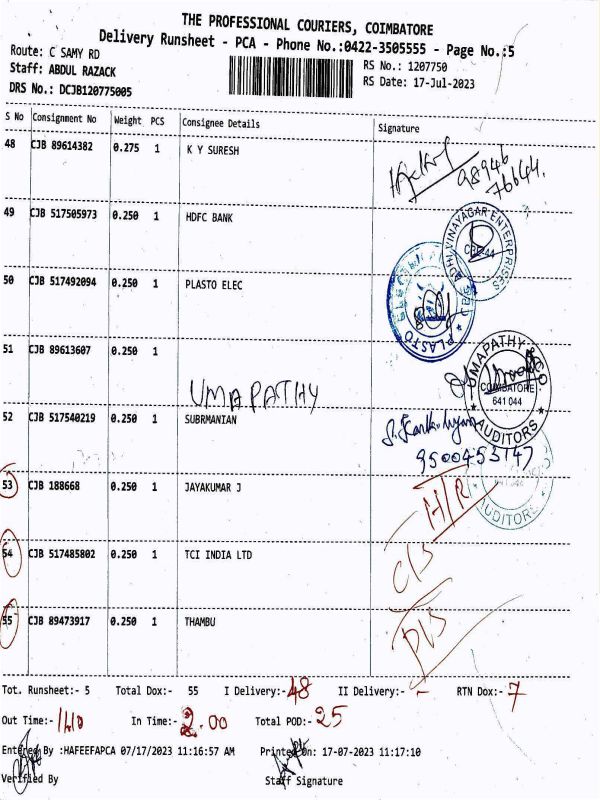 THE PROFESSIONAL COURIERS, COIMBATORE
Delivery Runsheet - PCA - Phone No.:0422-3505555 - Page No.:5
Route: C SAMY RD
RS No.: 1207750
Staff: ABDUL RAZACK
RS Date: 17-Jul-2023
DRS No.: DCJB120775005
S No Consignment No Weight PCS Consignee Details Signature
48 CJB 89614382 0.275 1 K Y SURESH
98946
76644.
49 CJB 517505973 0.250 1 HDFC BANK
ADHI VINAYAGAR ENTERPRISES
50 CJB 517492094 0.250 1 PLASTO ELEC
PLASTO
51 CJB 89613607 0.250 1
UMAPATHY
UMAPATHY & CO
COIMBATORE
641 044
AUDITORS
52 CJB 517540219 0.250 1 SUBRMANIAN
9500453147
53 CJB 188668 0.250 1 JAYAKUMAR J
H/R
AUDITOR
54 CJB 517485802 0.250 1 TCI INDIA LTD
C/S
55 CJB 89473917 0.250 1 THAMBU
P/S
Tot. Runsheet:- 5 Total Dox:- 55 I Delivery:- 48 II Delivery:- - RTN Dox:- 7
Out Time:- 11.10 In Time:- 2.00 Total POD:- 25
Entered By :HAFEEFAPCA 07/17/2023 11:16:57 AM Printed On: 17-07-2023 11:17:10
Verified By Staff Signature